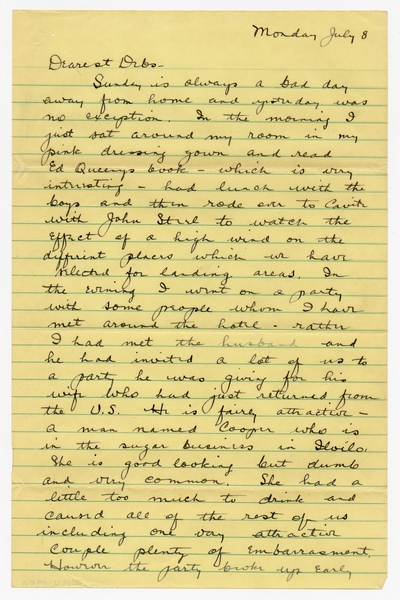 Monday July 8
Dearest Debs-
Sunday is always a bad day
away from home and yesterday was
no exception. In the morning I
just sat around my room in my
pink dressing gown and read
Ed Queenys book - which is very
interesting - had lunch with the
boys and then rode over to Cavite
with John Steel to watch the
effect of a high wind on the
different places which we have
selected for landing areas. In
the evening I went on a party
with some people whom I have
met around the hotel - rather
I had met the husband and
he had invited a lot of us to
a party he was giving for his
wife who had just returned from
the U.S. He is fairly attractive -
a man named Cooper who is
in the sugar business in Iloilo.
She is good looking but dumb
and very common. She had a
little too much to drink and
caused all of the rest of us
including one very attractive
couple plenty of embarrasment.
However the party broke up early